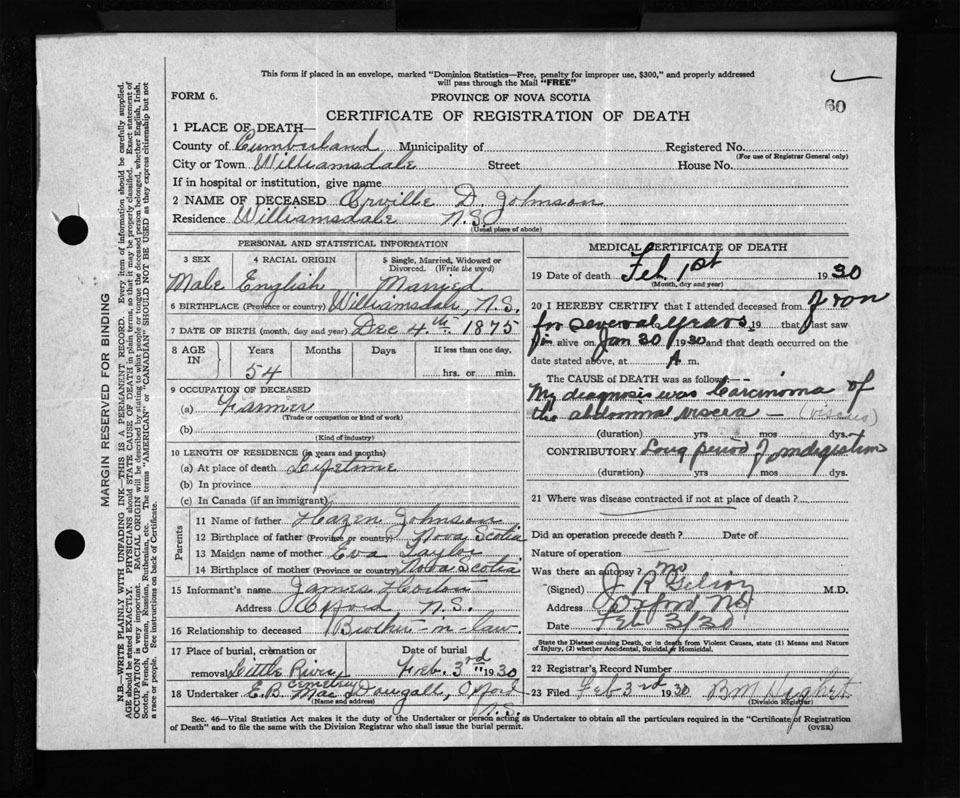 This form if placed in an envelope, marked "Dominion Statistics—Free, penalty for improper use, $300," and properly addressed
will pass through the Mail "FREE"
FORM 6.
PROVINCE OF NOVA SCOTIA
60
CERTIFICATE OF REGISTRATION OF DEATH
1 PLACE OF DEATH—
County of Cumberland Municipality of Registered No.
(For use of Registrar General only)
City or Town Williamsdale Street House No.
If in hospital or institution, give name
2 NAME OF DECEASED Orville D. Johnson
Residence Williamsdale N.S.
(Usual place of abode)
PERSONAL AND STATISTICAL INFORMATION
3 SEX 4 RACIAL ORIGIN 5 Single, Married, Widowed or
Divorced. (Write the word)
Male English Married
6 BIRTHPLACE (Province or country) Williamsdale, N.S.
7 DATE OF BIRTH (month, day and year) Dec 4th 1875
8 AGE IN Years Months Days If less than one day,
54 hrs. or min.
9 OCCUPATION OF DECEASED
(a) Farmer
(Trade or occupation or kind of work)
(b)
(Kind of industry)
10 LENGTH OF RESIDENCE (in years and months)
(a) At place of death Lifetime
(b) In province
(c) In Canada (if an immigrant)
Parents
11 Name of father Hazen Johnson
12 Birthplace of father (Province or country) Nova Scotia
13 Maiden name of mother Eva Taylor
14 Birthplace of mother (Province or country) Nova Scotia
15 Informant's name James Horton
Address Oxford N.S.
16 Relationship to deceased Brother-in-law.
17 Place of burial, cremation or Date of burial
removal Little River Feb. 3rd " 1930
Cemetery
18 Undertaker E.B. MacDougall, Oxford
(Name and address) N.S.
MEDICAL CERTIFICATE OF DEATH
19 Date of death Feb 1st 1930
(Month, day and year)
20 I HEREBY CERTIFY that I attended deceased from
for several years 19 that I last saw
alive on Jan 30 1930 and that death occurred on the
date stated above, at A m.
The CAUSE of DEATH was as follows:—
My diagnosis was Carcinoma of
the abdominal viscera — (viscus)
(duration) yrs mos dys.
CONTRIBUTORY Long period of indigestion
(duration) yrs mos dys.
21 Where was disease contracted if not at place of death?
Did an operation precede death? Date of
Nature of operation
Was there an autopsy? no
(Signed) J R M.D.
Address Oxford NS
Date Feb 3/30
State the Disease causing Death, or in death from Violent Causes, state (1) Means and Nature
of Injury, (2) whether Accidental, Suicidal or Homicidal.
22 Registrar's Record Number
23 Filed Feb 3rd 1930 B M
(Division Registrar)
Sec. 46—Vital Statistics Act makes it the duty of the Undertaker or person acting as Undertaker to obtain all the particulars required in the "Certificate of Registration
of Death" and to file the same with the Division Registrar who shall issue the burial permit. (OVER)
MARGIN RESERVED FOR BINDING
N.B.—WRITE PLAINLY WITH UNFADING INK—THIS IS A PERMANENT RECORD. Every item of information should be carefully supplied.
AGE should be stated EXACTLY. PHYSICIANS should STATE CAUSE OF DEATH in plain terms, so that it may be properly classified. Exact statement of
OCCUPATION is very important. RACIAL ORIGIN will be described by stating to what people or tongue the deceased person belonged, whether English, Irish,
Scotch, French, German, Russian, Ruthenian, etc. The terms "AMERICAN" or "CANADIAN" SHOULD NOT BE USED as they express citizenship but not
a race or people. See instructions on back of Certificate.